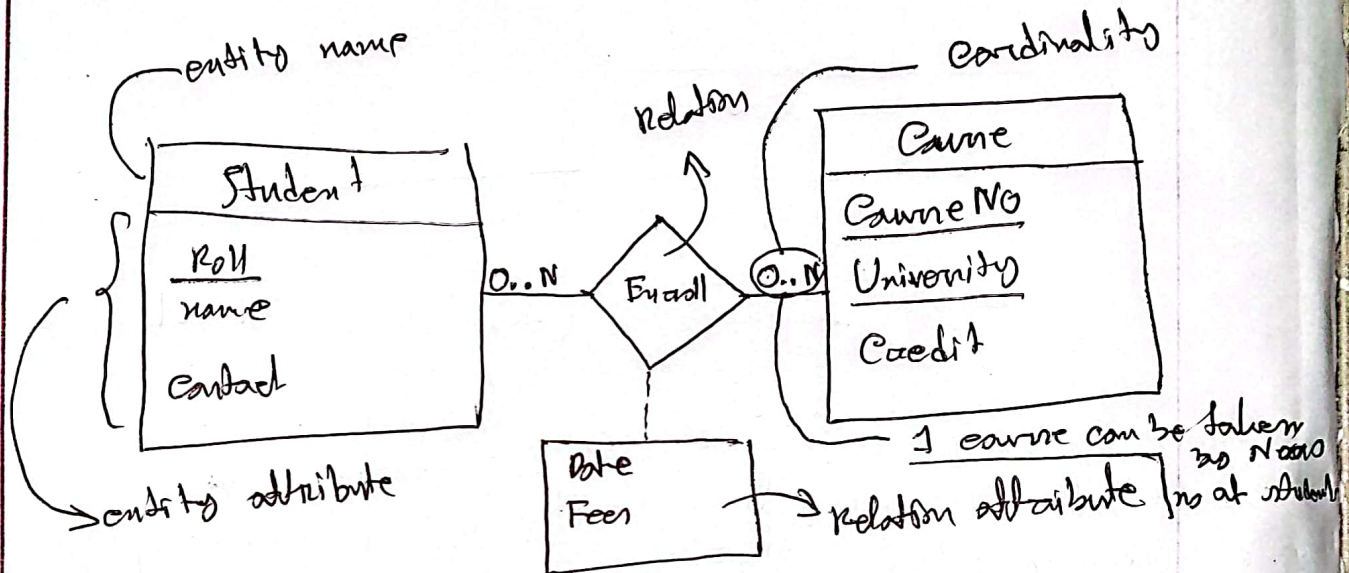 entity name
cardinality
Relation
Student
Course
Roll
name
contact
0..N
Enroll
0..N
Course NO
University
Credit
1 course can be taken
by N
no of student
Date
Fees
entity attribute
Relation attribute